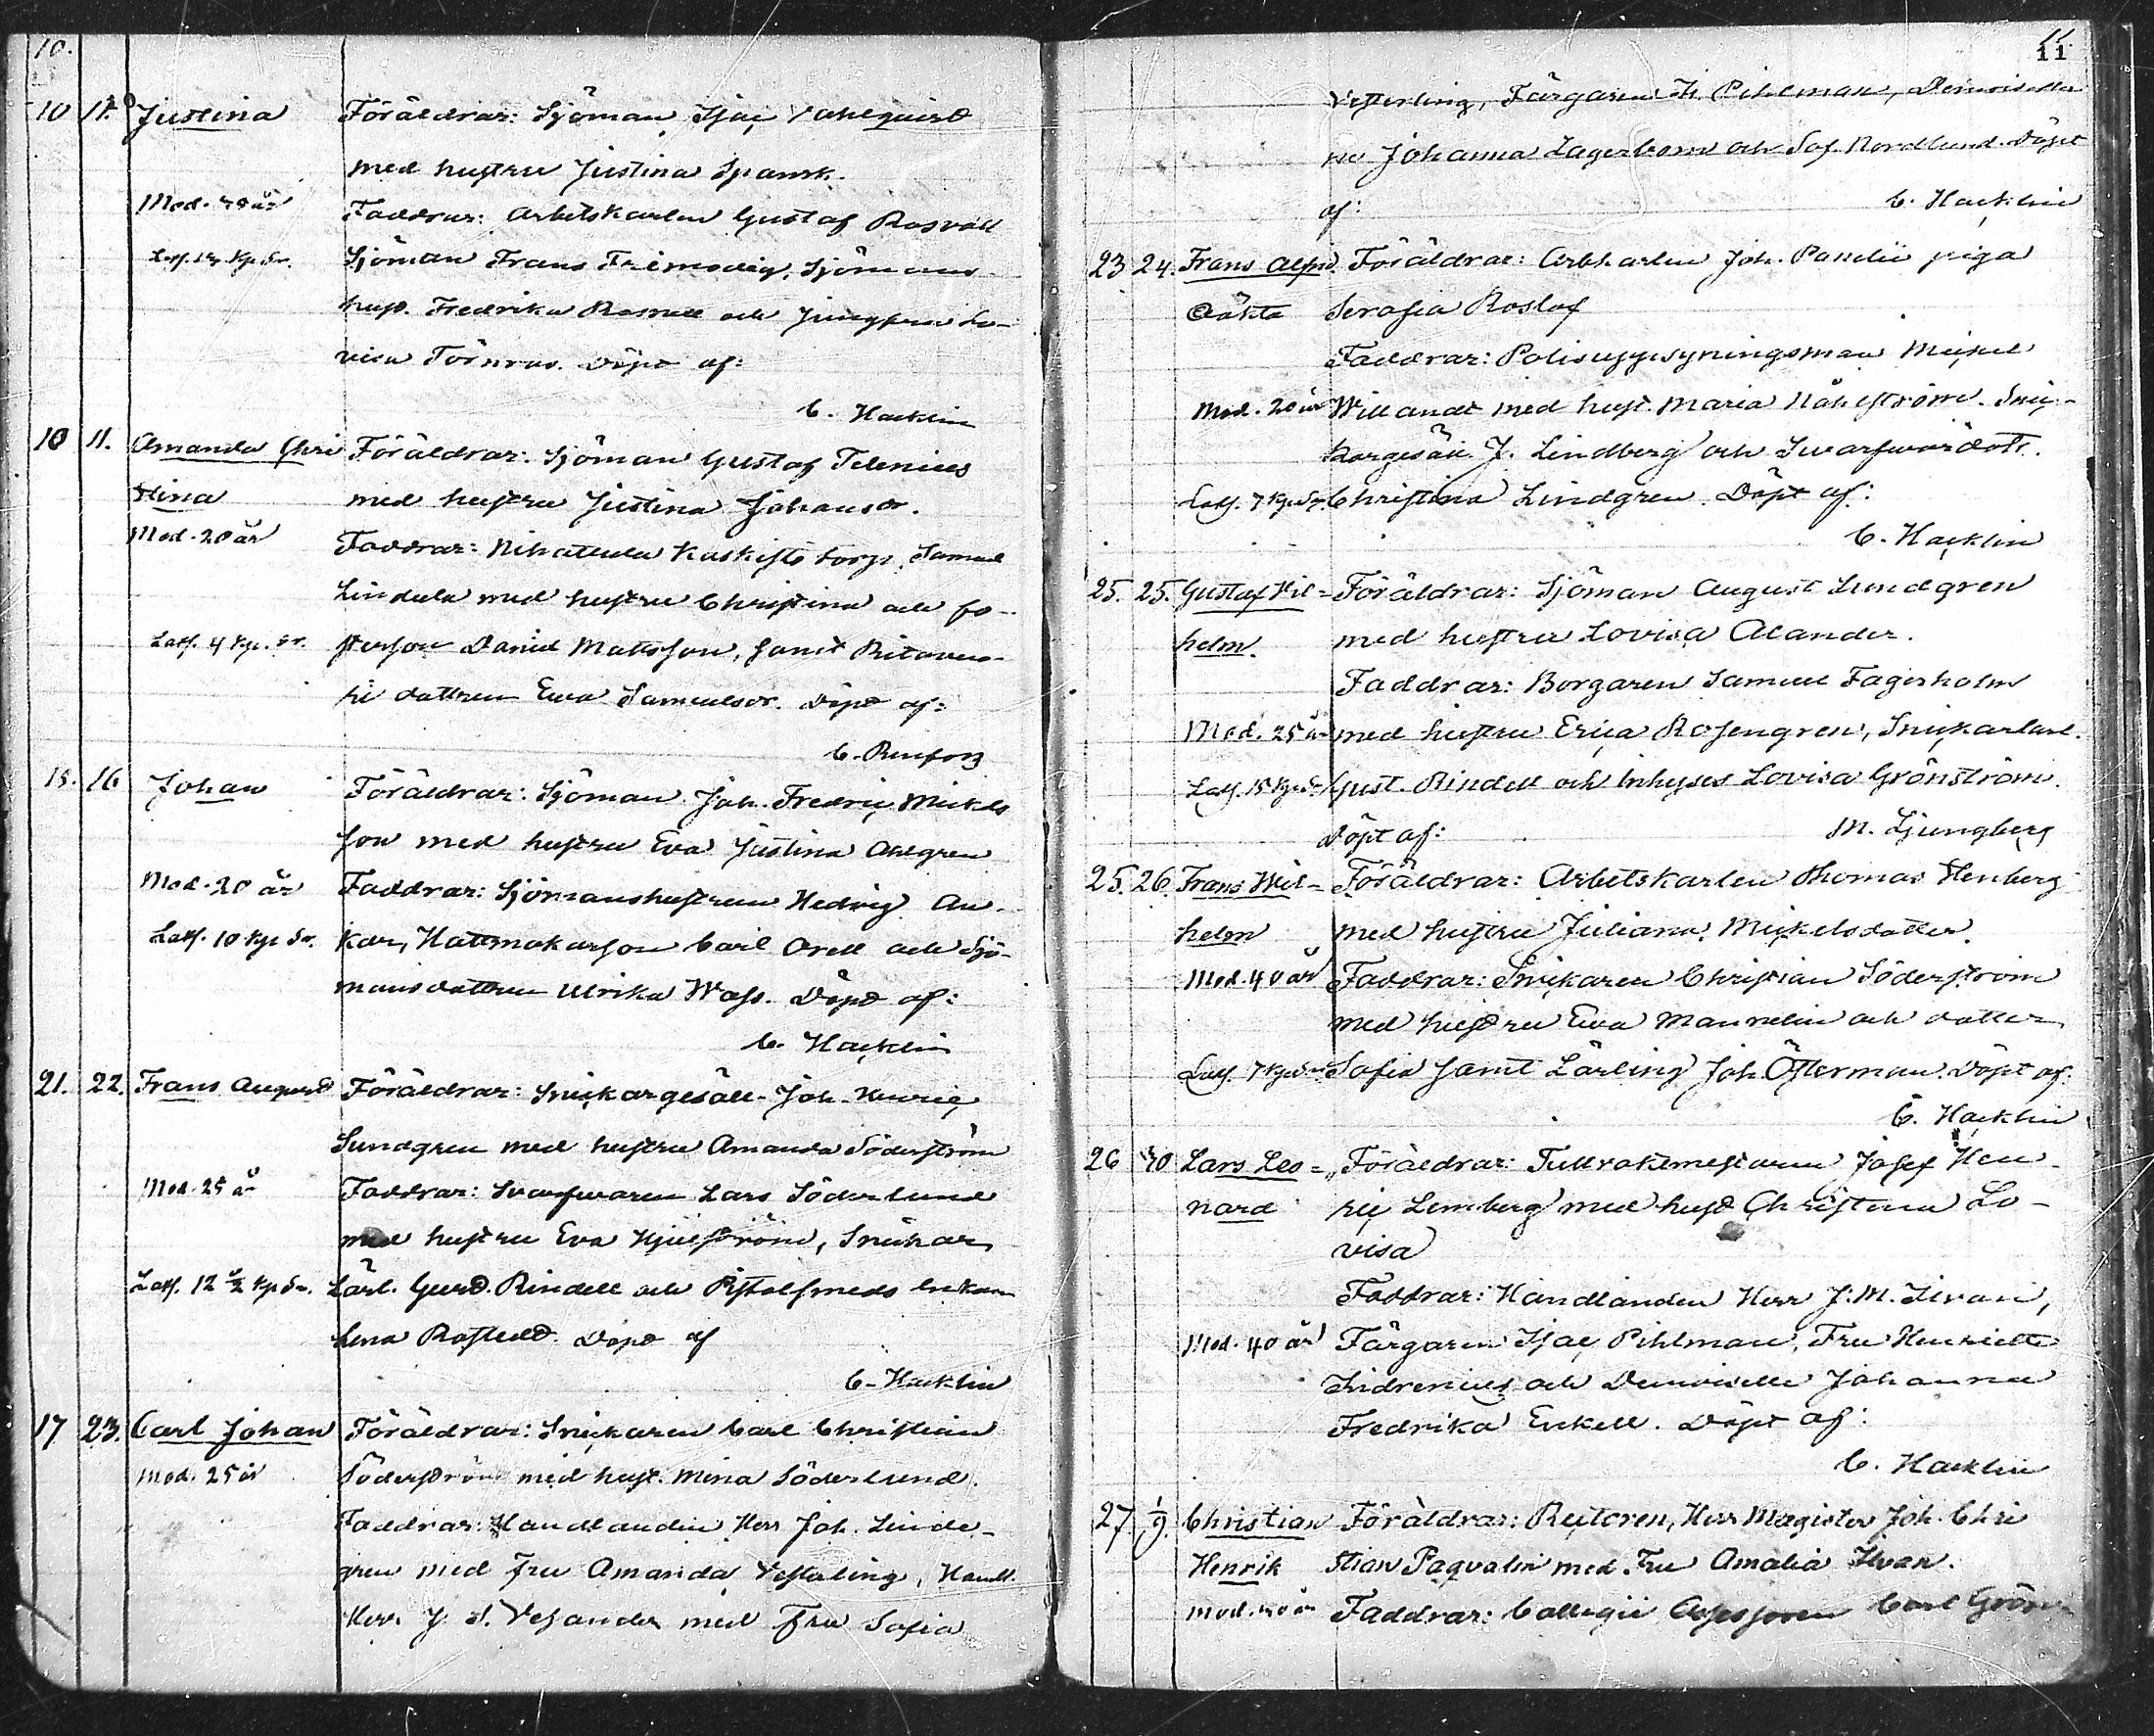 10.
10 11. Justina Föräldrar: Sjöman Isac Vahlquist
med hustru Justina Spansk.
Mod. år Faddrar: Arbetskarlen Gustaf Rosvall
Latf. Kp. Sr. Sjöman Frans Frimodig, Sjömans
hust. Fredrika Rosvall och Jungfrun Lo-
visa Törnros. Döpt af:
C. Hacklin
10 11. Amanda Chri Föräldrar: Sjöman Gustaf Telenius
stina med hustru Justina Johansdr.
Mod. 20 år Faddrar: Nihattula Kaskisto torp. Samuel
Lindula med hustru Christina och fo-
Latf. 4 Kp. Sr. sterson David Mattsson, samt Ritaves-
hi dottren Eva Samuelsdr. Döpt af:
C. Renfors
15. 16 Johan Föräldrar: Sjöman Joh. Fredric Mickels
son med hustru Eva Justina Ahlgren
Mod. 20 år Faddrar: Sjömanshustrun Hedvig An-
Latf. 10 Kp. Sr. kar, Hattmakarson Carl Orell och Sjö-
mansdottren Ulrika Wass. Döpt af:
C. Hacklin
21. 22. Frans August Föräldrar: Snickargesäll Joh. Henric
Sundgren med hustru Amanda Söderström
Mod. 25 år Faddrar: Svarfvaren Lars Söderlund
med hustru Eva Hjulström, Snickar
Latf. 12 1/2 Kp. Sr. Lärl. Gust. Rindell och Pistolsmeds enkan
Lena Rostedt. Döpt af
C. Hacklin
17 23. Carl Johan Föräldrar: Snickaren Carl Christian
Mod. 25 år Söderström med hust. Mina Söderlund.
Faddrar: Handlanden Herr Joh. Linde-
gren med Fru Amanda Vesterling, Handl.
Herr J. S. Vesander med Fru Sofia
11
11
Vesterling, Färgaren Is. Pihlman, Demoiseller
ne Johanna Lagerbom och Sof. Nordlund. Döpt
af: C. Hacklin
23 24. Frans Alfrd. Föräldrar: Arbkarlen Joh. Pandii piga
Oäkta Serafia Roslöf
Faddrar: Polisuppsyningsman Mickel
Mod. 20 år Willandt med hust. Maria Nåhlström. Snic-
kargesäll J. Lindberg och Svarfvardott.
Latf. 7 Kp. Sr. Christina Lindgren. Döpt af:
C. Hacklin
25. 25. Gustaf Vil- Föräldrar: Sjöman August Lundgren
helm. med hustru Lovisa Alander.
Faddrar: Borgaren Samuel Fagerholm
Mod. 25 år med hustru Erica Rosengren, Snickarlärl.
Latf. 15 Kp. Sr. Gust. Rindell och Inhyses Lovisa Grönström.
Döpt af: M. Ljungberg
25. 26. Frans Wil- Föräldrar: Arbetskarlen Thomas Stenberg
helm med hustru Juliana Mickelsdotter.
Mod. 40 år Faddrar: Snickaren Christian Söderström
med hustru Eva Mannelin och dotter
Latf. 7 Kp. Sr. Sofia samt Lärling Joh. Österman. Döpt af:
C. Hacklin
26 30 Lars Leo- Föräldrar: Tullvaktmestaren Josef Hen-
nard ric Lemberg med hust Christina Lo-
visa
Faddrar: Handlanden Herr J. M. Zivani,
Mod. 40 år Färgaren Isac Pihlman, Fru Henriette
Indrenius och Demoiselle Johanna
Fredrika Enkell. Döpt af:
C. Hacklin
27 1/9. Christian Föräldrar: Rectoren, Herr Magister Joh. Chri
Henrik stian Paqvalin med Fru Amalia Ilvan.
Mod. år Faddrar: Collegii Assessoren Carl Grön-